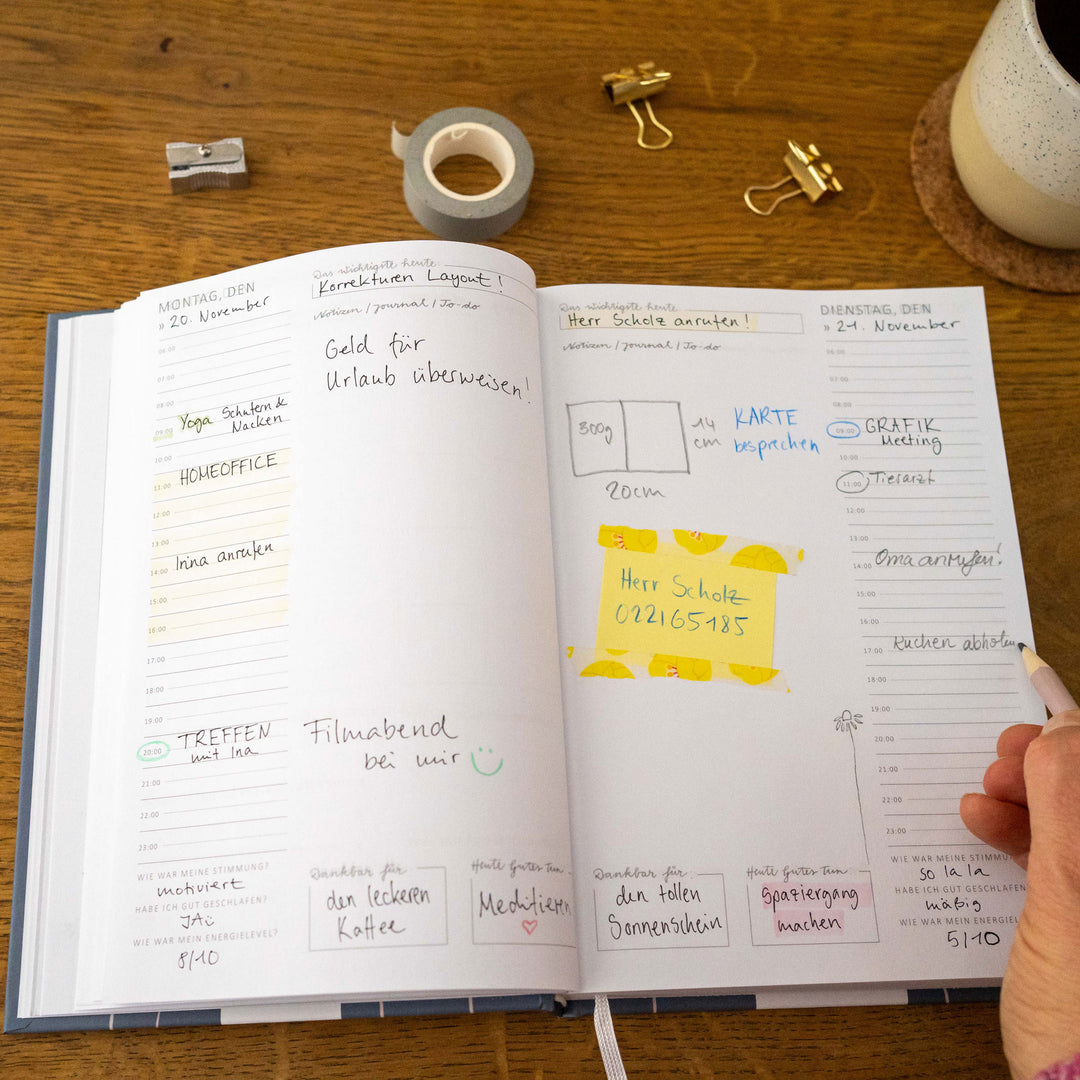 MONTAG, DEN
» 20. November
06:00
07:00
08:00
09:00 Yoga Schultern &
Nacken
10:00
HOMEOFFICE
11:00
12:00
13:00
Irina anrufen
14:00
15:00
16:00
17:00
18:00
19:00
20:00 TREFFEN
mit Ina
21:00
22:00
23:00
WIE WAR MEINE STIMMUNG?
motiviert
HABE ICH GUT GESCHLAFEN?
JA
WIE WAR MEIN ENERGIELEVEL?
8/10
Das wichtigste heute
Korrekturen Layout!
Notizen / Journal / To-do
Geld für
Urlaub überweisen!
Filmabend
bei mir
Dankbar für
den leckeren
Kaffee
Heute Gutes tun
Meditieren
Das wichtigste heute
Herr Scholz anrufen!
Notizen / Journal / To-do
300g
14
cm
20cm
KARTE
besprechen
Herr Scholz
022165185
Dankbar für
den tollen
Sonnenschein
Heute Gutes tun
Spaziergang
machen
DIENSTAG, DEN
» 21. November
06:00
07:00
08:00
09:00 GRAFIK
Meeting
10:00
11:00 Tierarzt
12:00
13:00
14:00 Oma anrufen!
15:00
16:00
17:00 Kuchen abholen
18:00
19:00
20:00
21:00
22:00
23:00
WIE WAR MEINE STIMMUNG
so la la
HABE ICH GUT GESCHLAFEN
mäßig
WIE WAR MEIN ENERGIELEVEL
5/10